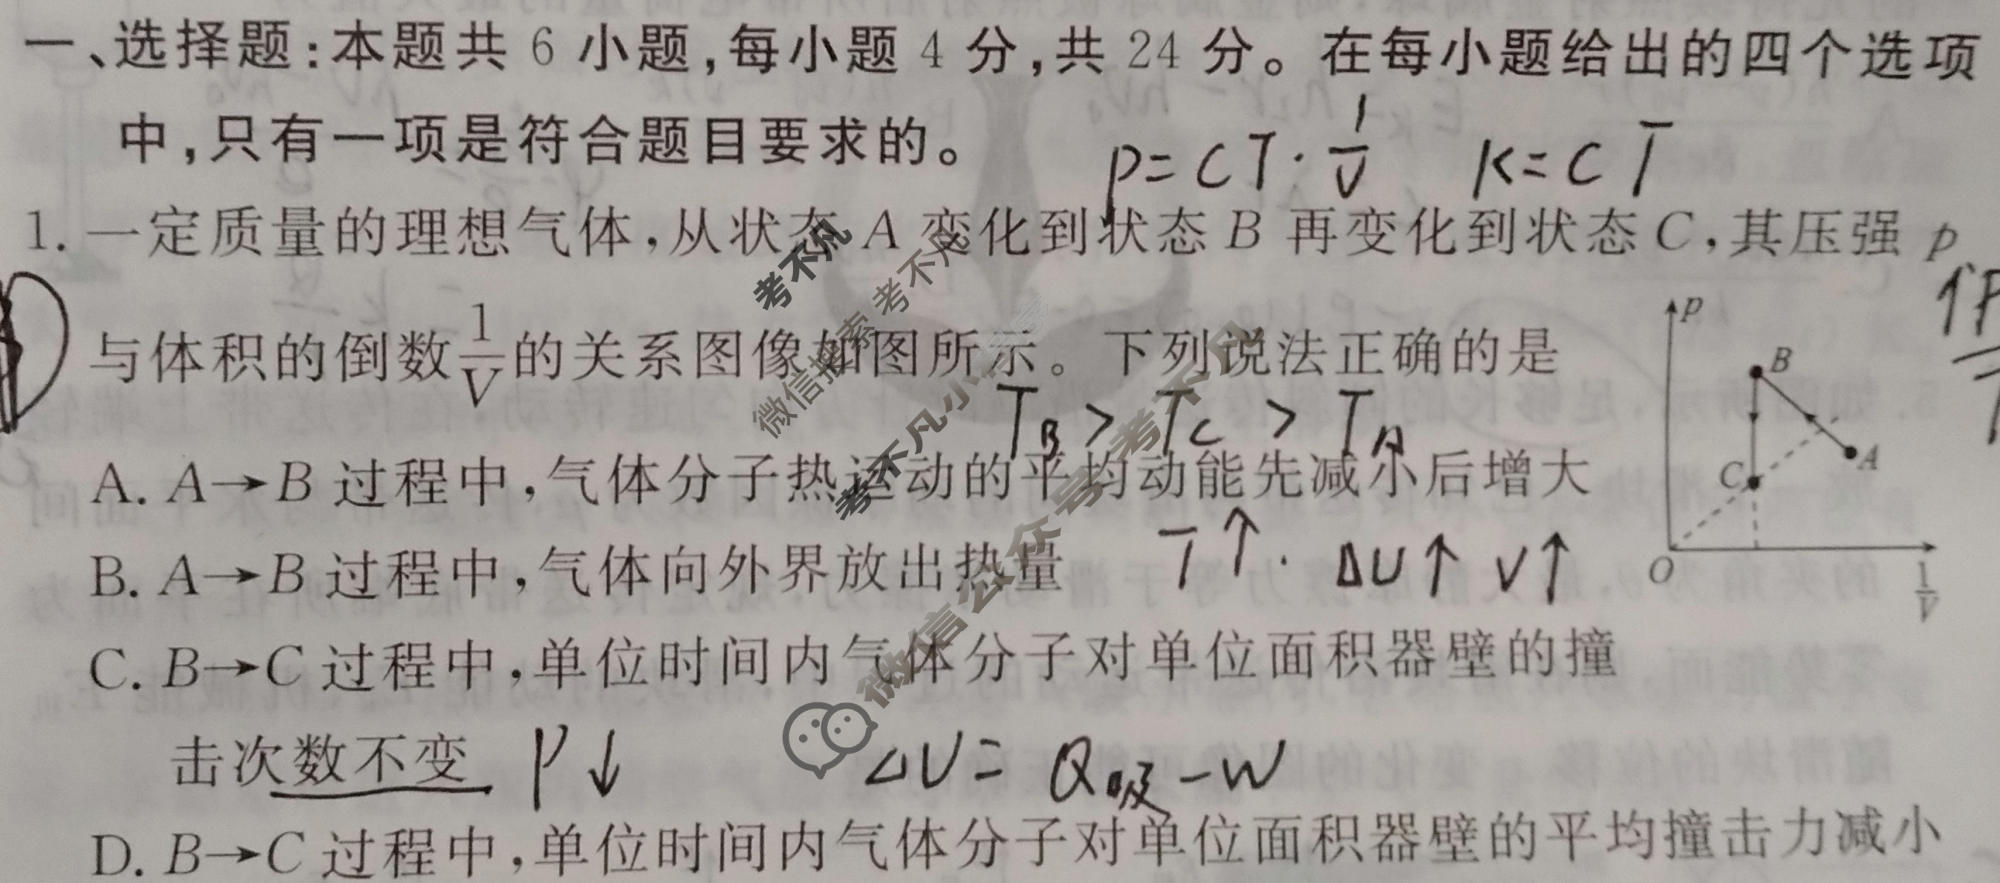 一、选择题:本题共 6 小题,每小题 4 分,共 24 分。在每小题给出的四个选项
中,只有一项是符合题目要求的。
p=CT·1/V K=CT
1. 一定质量的理想气体,从状态 A 变化到状态 B 再变化到状态 C,其压强 p
与体积的倒数1/V的关系图像如图所示。下列说法正确的是
TB > TC > TA
A. A→B 过程中,气体分子热运动的平均动能先减小后增大
B. A→B 过程中,气体向外界放出热量
T↑. ΔU↑ V↑
C. B→C 过程中,单位时间内气体分子对单位面积器壁的撞
击次数不变
P↓ ΔU= Q吸-W
D. B→C 过程中,单位时间内气体分子对单位面积器壁的平均撞击力减小
p
B
A
C
O
1/V
考不凡
微信搜索考不凡
考不凡小
微信公众号考不凡